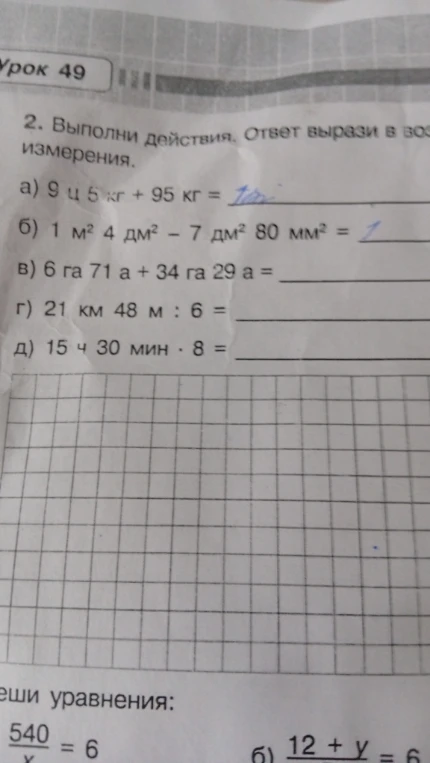 Урок 49
2. Выполни действия. Ответ вырази в
измерения.
а) 9 ц 5 кг + 95 кг = 1
б) 1 м² 4 дм² – 7 дм² 80 мм² = 1
в) 6 га 71 а + 34 га 29 а =
г) 21 км 48 м : 6 =
д) 15 ч 30 мин · 8 =
уравнения:
540
= 6
б) 12 + y
= 6